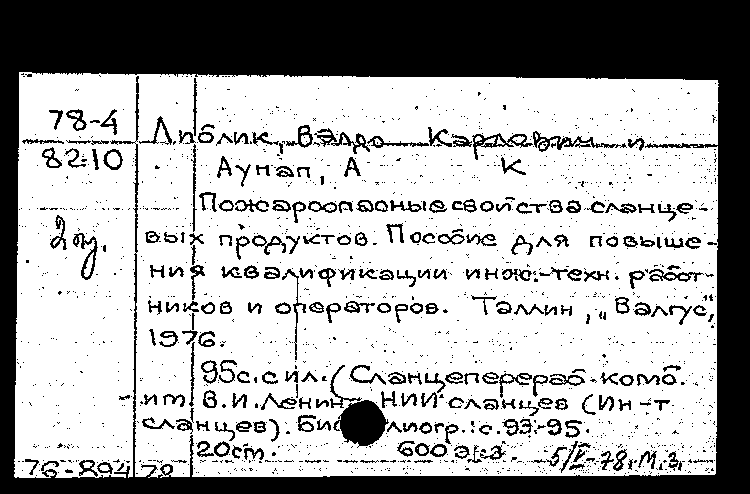 78-4
8210
Либлик, Валдо Карлович и
Аунап, А К
2 оу.
Пожароопасные свойства сланце-
вых продуктов. Пособие для повыше-
ния квалификации инж.-техн. работ-
ников и операторов. Таллин, „Валгус",
1976.
95с. с ил. (Сланцеперераб. комб.
им. В.И. Ленина НИИ сланцев (Ин-т
сланцев). Библиогр.: с. 93-95.
20см. 600 экз. 5/V-78. М.З.
76-89478